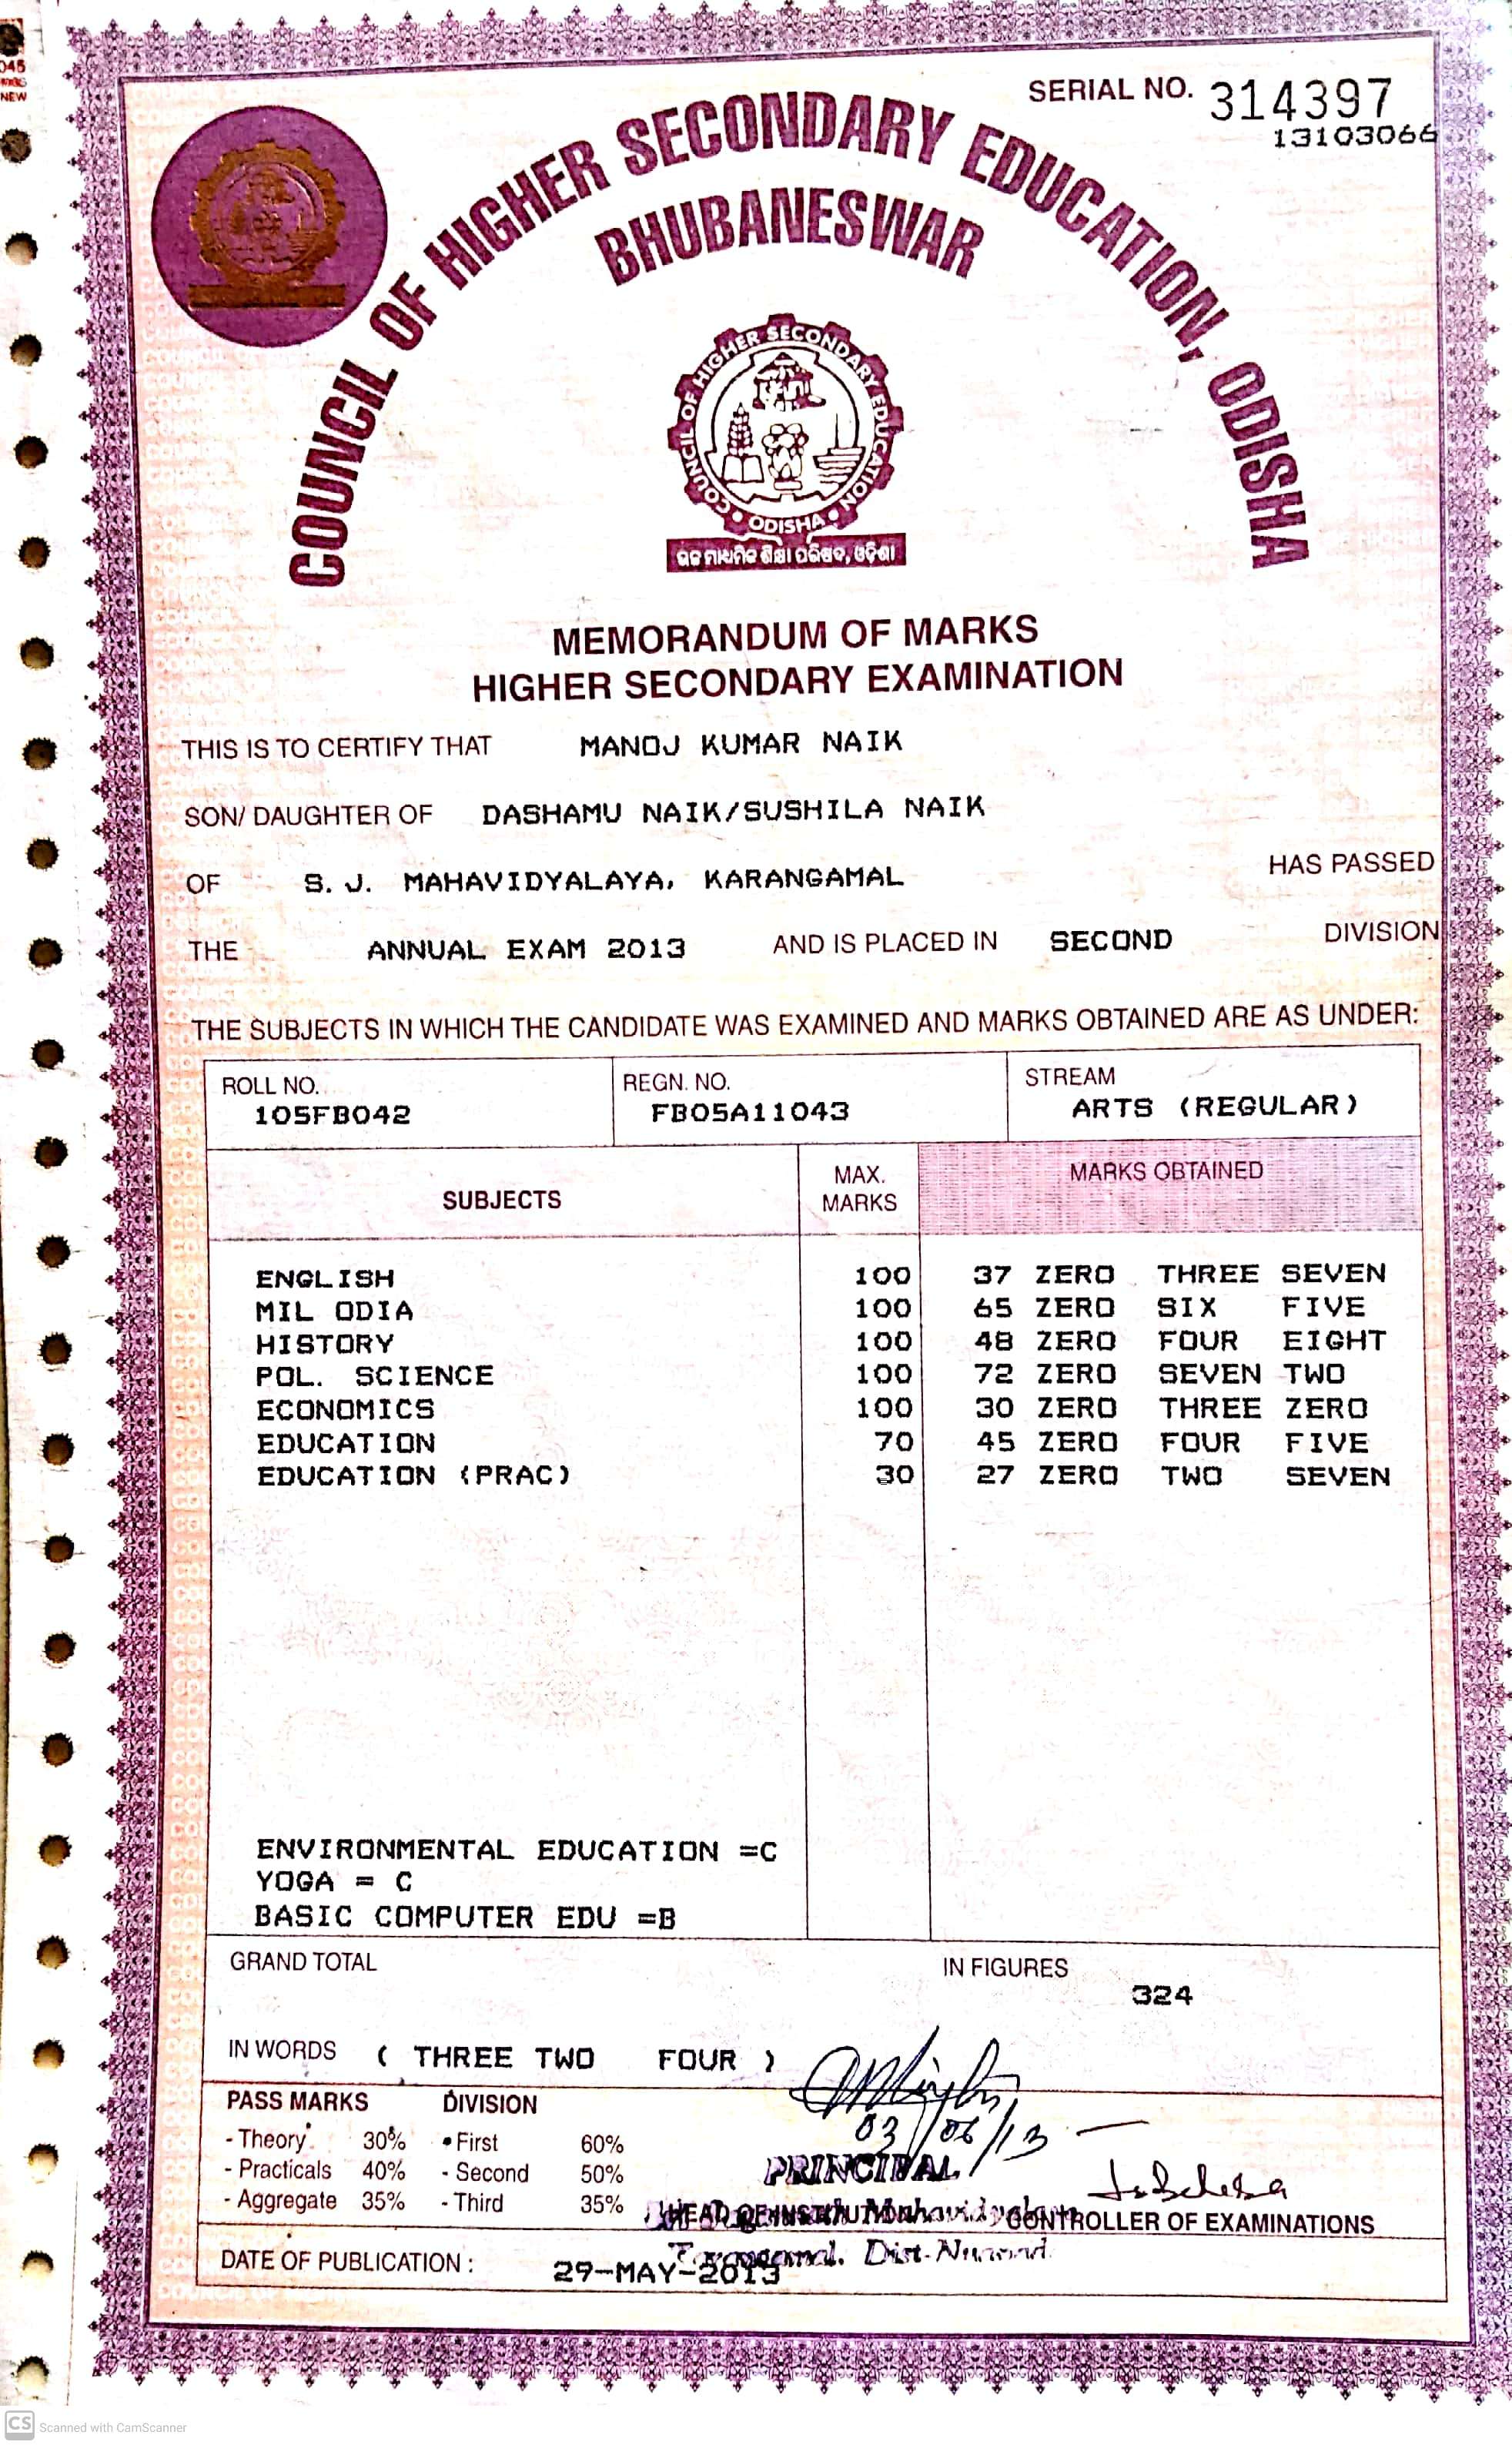 045
NEW
SERIAL NO. 314397
13103066
COUNCIL OF HIGHER SECONDARY EDUCATION, ODISHA
BHUBANESWAR
COUNCIL OF HIGHER SECONDARY EDUCATION
• ODISHA •
ଉଚ୍ଚ ମାଧ୍ୟମିକ ଶିକ୍ଷା ପରିଷଦ, ଓଡ଼ିଶା
MEMORANDUM OF MARKS
HIGHER SECONDARY EXAMINATION
THIS IS TO CERTIFY THAT MANOJ KUMAR NAIK
SON/ DAUGHTER OF DASHAMU NAIK/SUSHILA NAIK
OF S. J. MAHAVIDYALAYA, KARANGAMAL HAS PASSED
THE ANNUAL EXAM 2013 AND IS PLACED IN SECOND DIVISION
THE SUBJECTS IN WHICH THE CANDIDATE WAS EXAMINED AND MARKS OBTAINED ARE AS UNDER:
ROLL NO. REGN. NO. STREAM
105FB042 FB05A11043 ARTS (REGULAR)
SUBJECTS MAX. MARKS MARKS OBTAINED
ENGLISH 100 37 ZERO THREE SEVEN
MIL ODIA 100 65 ZERO SIX FIVE
HISTORY 100 48 ZERO FOUR EIGHT
POL. SCIENCE 100 72 ZERO SEVEN TWO
ECONOMICS 100 30 ZERO THREE ZERO
EDUCATION 70 45 ZERO FOUR FIVE
EDUCATION (PRAC) 30 27 ZERO TWO SEVEN
ENVIRONMENTAL EDUCATION =C
YOGA = C
BASIC COMPUTER EDU =B
GRAND TOTAL IN FIGURES
324
IN WORDS ( THREE TWO FOUR )
PASS MARKS DIVISION
- Theory 30% • First 60%
- Practicals 40% - Second 50%
- Aggregate 35% - Third 35%
03/06/13
PRINCIPAL
HEAD OF INSTITUTION Mahavidyalaya
CONTROLLER OF EXAMINATIONS
Dist-
DATE OF PUBLICATION : 29-MAY-2013
CS Scanned with CamScanner